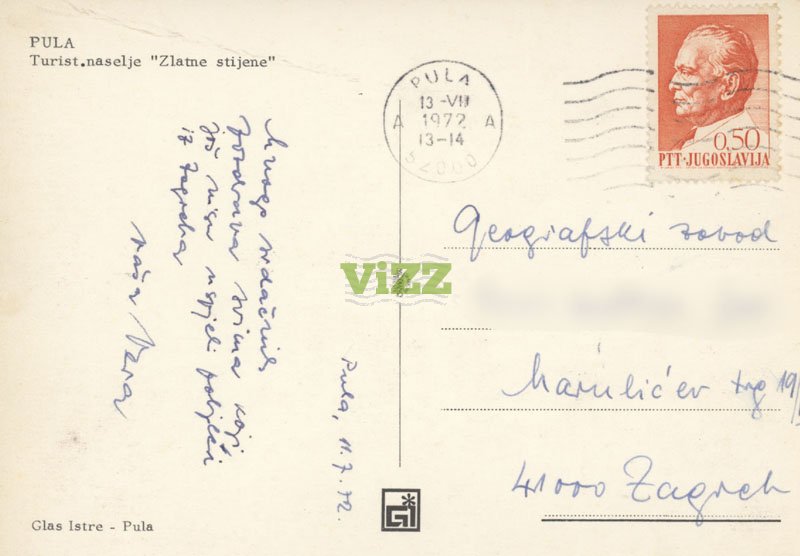 PULA
Turist.naselje "Zlatne stijene"
Mnogo srdačnih
pozdrava svima koji
još nisu uspjeli pobjeći
iz Zagreba
vaša Vera
Pula, 11.7.72.
Glas Istre - Pula
PULA
13-VII
1972
A A
13-14
52000
0,50
PTT·JUGOSLAVIJA
ViZZ
Geografski zavod
Marulićev trg 19/
41000 Zagreb
GI